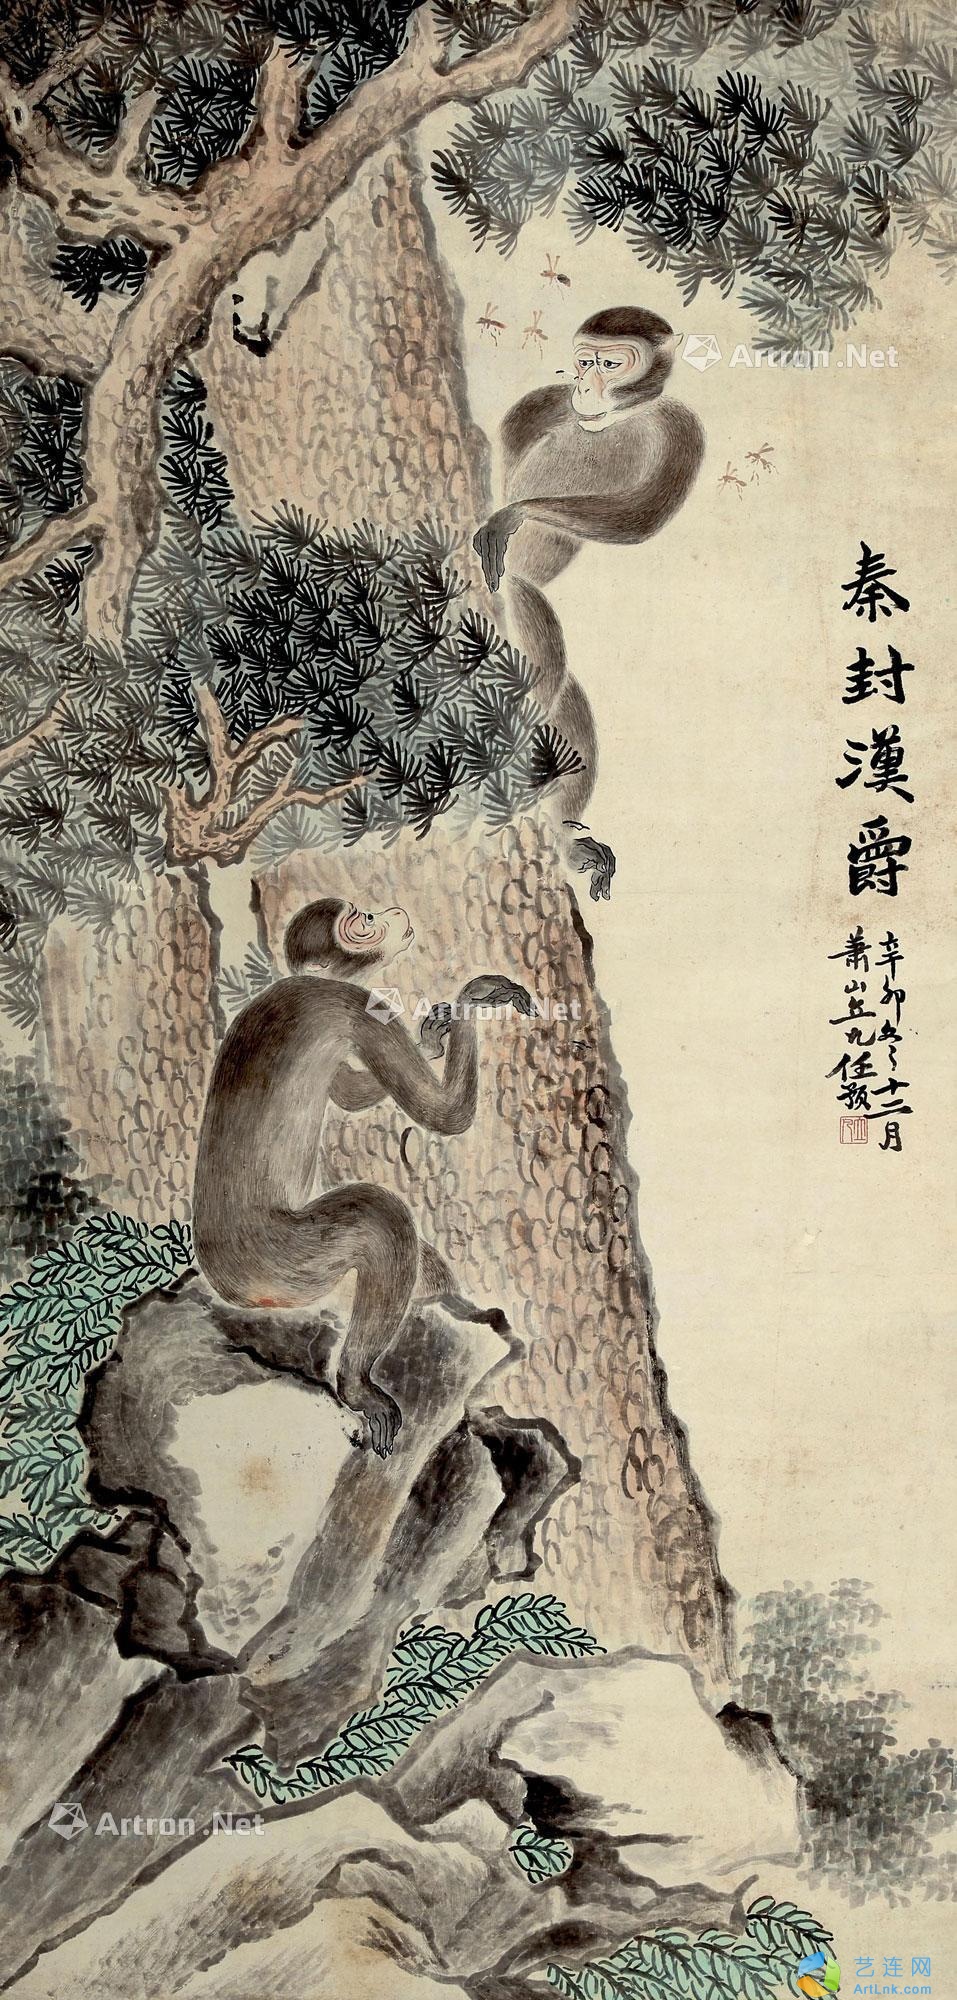 秦封漢爵
辛卯冬十二月
蕭山任頤
Artron.Net
Artron.Net
Artron.Net
艺连网
ArtLnk.com